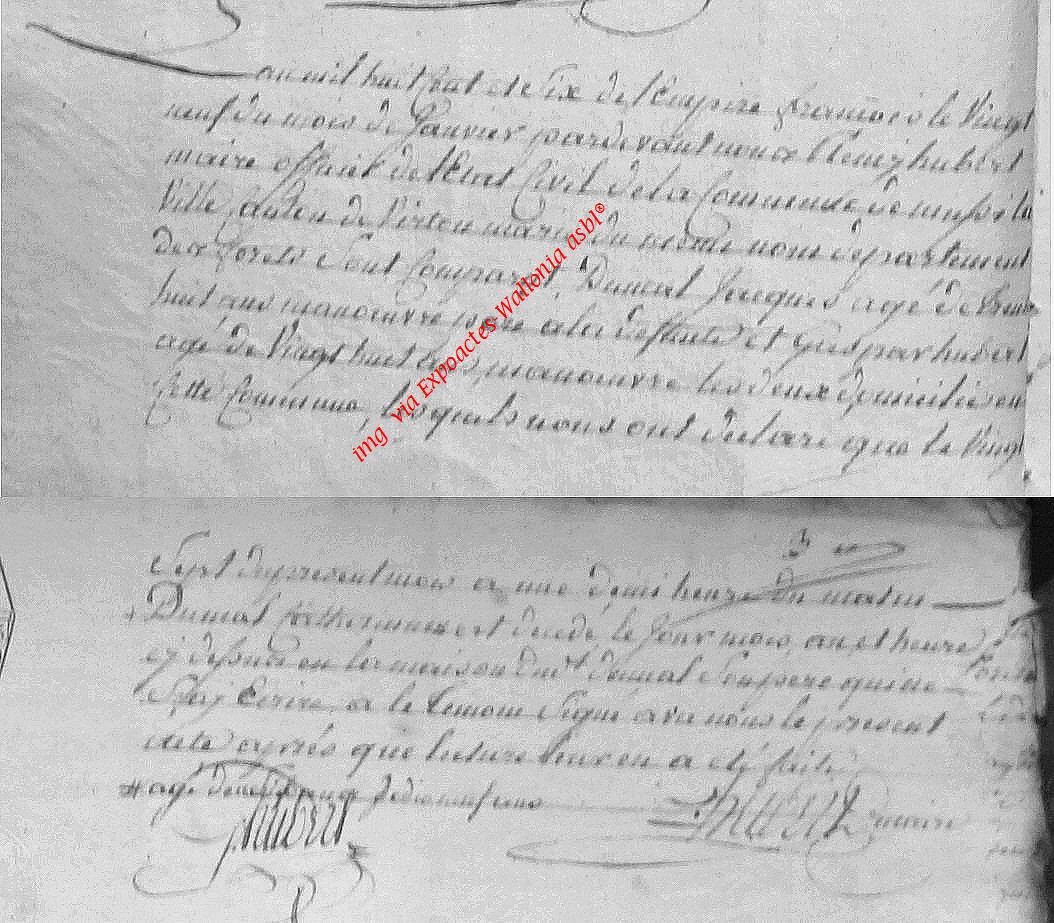 an mil huit cent et six de l'Empire françois le Vingt
neuf du mois de Janvier pardevant nous hubert
maire officié de l'Etat Civil de la Commune de mussi la
Ville canton de Virton mairie du même nom departement
des forets Sont Comparut Dumal Jacques agé de trente
huit ans manoeuvre pere a la deffunte et hubert
age de Vingt huit ans, manoeuvre les deux domiciliés en
Cette Commune, lesquels nous ont déclaré que le Vingt
Sept du present mois a une demi heure du matin
Dumal est décédé le Jour mois, an et heure
cy dessus en la maison du dt dumal Son pere qui ne
Scay Ecrire, a le temoin Signé avec nous le present
acte après que lecture leur en a eté faite
agé de
hubert
hubert maire
img via Expoactes-Wallonia asbl®